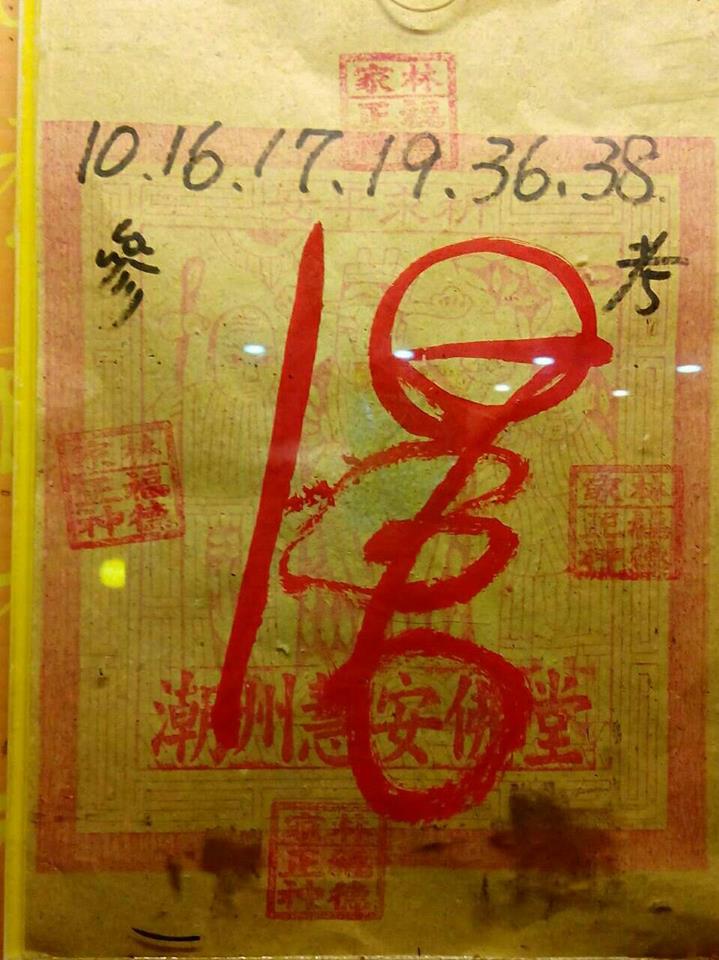 林家
福德
正神
10.16.17.19.36.38.
祈求平安
參考
林家
福德
正神
林家
福德
正神
潮州慧安佛堂
林家
福德
正神